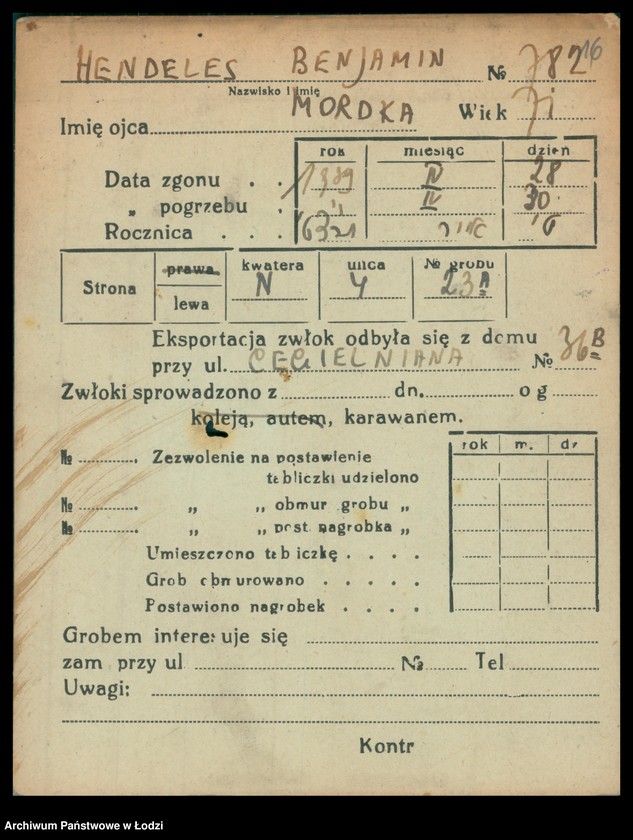 HENDELES BENJAMIN № 782 16
Nazwisko i imię
Imię ojca MORDKA Wiek 71
rok miesiąc dzień
Data zgonu . . 1939 IV 28
„ pogrzebu . " IV 30
Rocznica . . .
Strona prawa lewa kwatera N ulica Y № grobu 23A
Eksportacja zwłok odbyła się z domu
przy ul. CEGIELNIANA № 36B
Zwłoki sprowadzono z dn. o g
koleją, autem, karawanem.
rok m. dz
№ . Zezwolenie na postawienie
tabliczki udzielono
№ . „ „ obmur grobu „
№ . „ „ post. nagrobka „
Umieszczono tabliczkę . . . .
Grob obmurowano . . . . .
Postawiono nagrobek . . . .
Grobem interesuje się
zam przy ul № Tel
Uwagi:
Kontr
Archiwum Państwowe w Łodzi